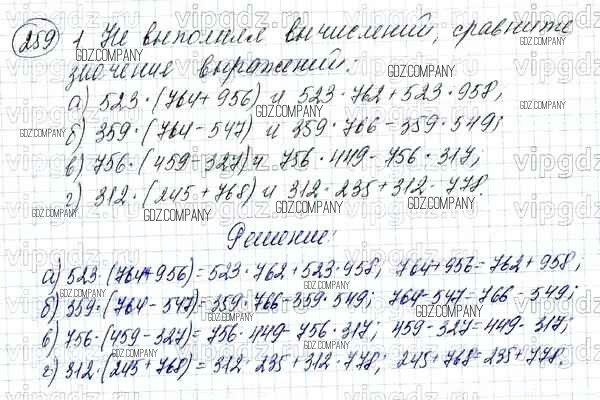 259 1 Не выполняя вычислений, сравните
значение выражений:
а) 523·(764+956) и 523·762+523·958,
б) 359·(764-547) и 359·766-359·549;
в) 756·(459-327) и 756·449-756·317;
г) 312·(245+768) и 312·235+312·778.
Решение:
а) 523·(764+956)=523·762+523·958, 764+956=762+958,
б) 359·(764-547)=359·766-359·549; 764-547=766-549;
в) 756·(459-327)=756·449-756·317; 459-327=449-317;
г) 312·(245+768)=312·235+312·778; 245+768=235+778.